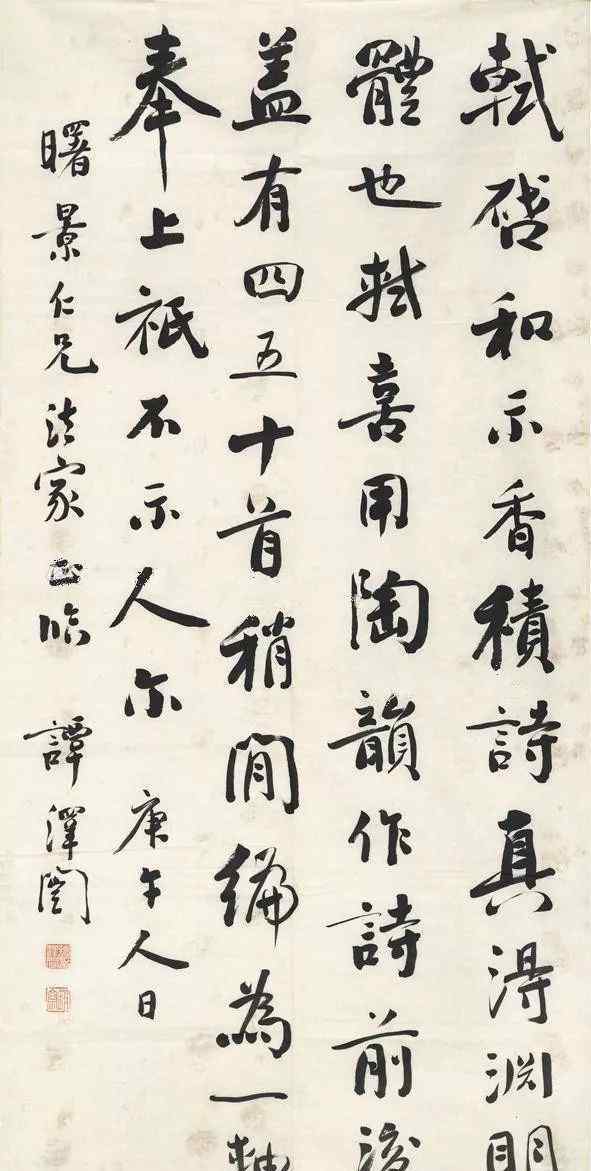 軾啓和示香積詩真得淵明
體也軾喜用陶韻作詩前後
蓋有四五十首稍閒編為一軸
奉上祇不示人尔 庚午人日
曙景仁兄法家正临 譚澤闓